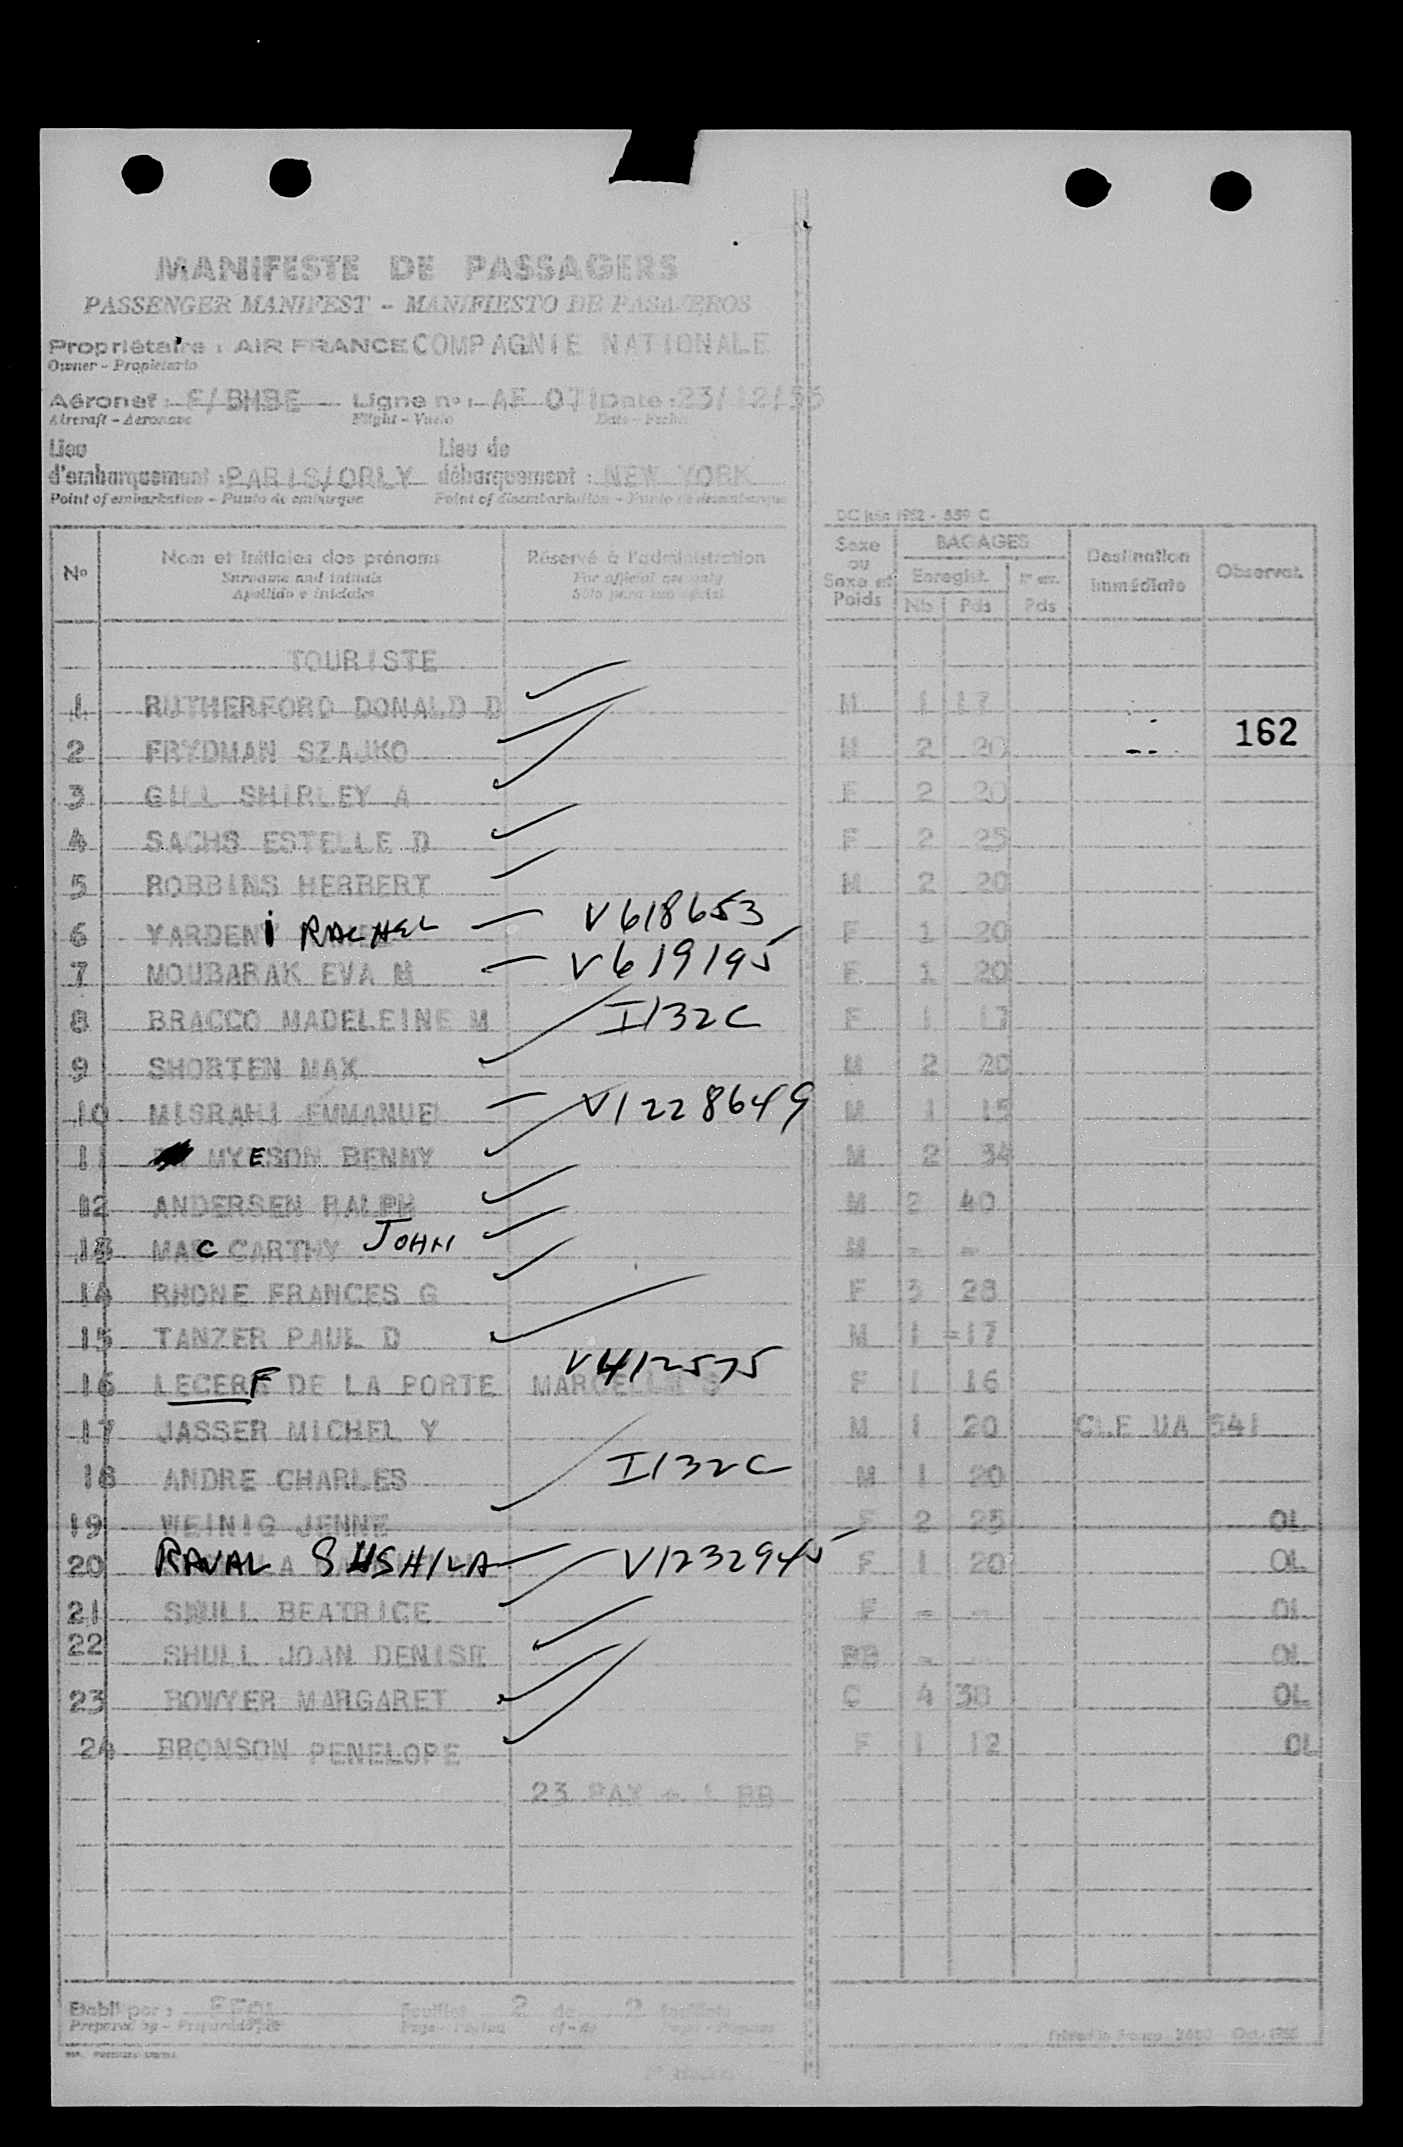 MANIFESTE DE PASSAGERS
PASSENGER MANIFEST - MANIFIESTO DE PASAJEROS
Propriétaire : AIR FRANCE COMPAGNIE NATIONALE
Owner - Propietario
Aéronef : F/BHBE Ligne nº : AF 071 Date : 23/12/55
Aircraft - Aeronave Flight - Vuelo Date - Fecha
Lieu d'embarquement : PARIS/ORLY Lieu de débarquement : NEW YORK
Point of embarkation - Punto de embarque Point of disembarkation - Punto de desembarque
DC juin 1952 - 559 C
Nº Nom et initiales des prénoms Réservé à l'administration Sexe ou Sexe et Poids BAGAGES Destination immédiate Observat.
Surname and initials For official use only Enregist.
Apellido e iniciales Sólo para uso oficial Nb Pds Pds
TOURISTE
1 RUTHERFORD DONALD D M 1 17
162
2 FRYDMAN SZAJKO M 2 20
3 GILL SHIRLEY A F 2 20
4 SACHS ESTELLE D F 2 25
5 ROBBINS HERBERT M 2 20
6 YARDENI RACHEL V618653 F 1 20
7 MOUBARAK EVA M V619195 F 1 20
8 BRACCO MADELEINE M I132C F 1 17
9 SHORTEN MAX M 2 20
10 MISRAHI EMMANUEL V1228649 M 1 15
11 MYESON BENNY M 2 34
12 ANDERSEN RALPH M 2 40
13 MAC CARTHY JOHN M - -
14 RHONE FRANCES G F 3 28
15 TANZER PAUL D M 1 -17
16 LECERF DE LA PORTE MARCELLE S V412575 F 1 16
17 JASSER MICHEL Y M 1 20 CLE UA 541
18 ANDRE CHARLES I132C M 1 20
19 WEINIG JENNE F 2 25 OL
20 RAVAL SUSHILA V1232945 F 1 20 OL
21 SHULL BEATRICE F - - OL
22 SHULL JOAN DENISE BB - OL
23 BOWYER MARGARET C 4 38 OL
24 BRONSON PENELOPE F 1 12 OL
23 PAX + 1 BB
Etabli par : Feuillet 2 de 2 feuillets
Prepared by - Preparado por Page - Página of - de Pages - Páginas
Printed in France